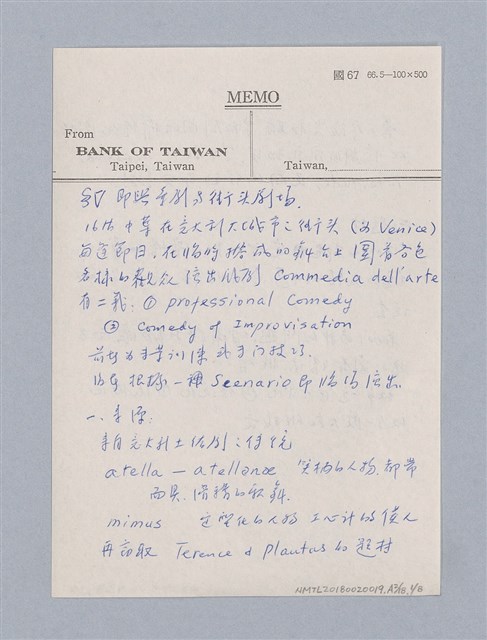 國 67 66.5—100×500
MEMO
From
BANK OF TAIWAN
Taipei, Taiwan
Taiwan,
即興喜劇与街头劇场.
16th 中葉在意大利大城市之街头 (如 Venice)
每逢節日, 在臨時搭成的舞台上 圍著各色
各樣的觀众演出 Commedia dell'arte
有二義. ① professional Comedy
② Comedy of Improvisation
前者为
后者根據一種 Scenario 即臨場演出.
一. 来源:
来自意大利土俗劇之传统
atella — atellanae 笑柄的人物, 都帶
面具. 滑稽的歌舞.
mimus 定型化的人物 工心計的僕人
再汲取 Terence & Plautus 的題材
NMTL20180020019.